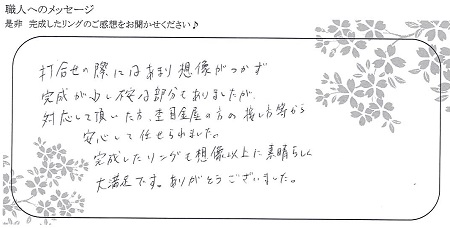 職人へのメッセージ
是非 完成したリングのご感想をお聞かせください♪
打合せの際にはあまり想像がつかず
完成が少し不安な部分もありましたが、
対応して頂いた方、杢目金屋の方の接し方等から
安心して任せられました。
完成したリングも想像以上に素晴らしく
大満足です。ありがとうございました。